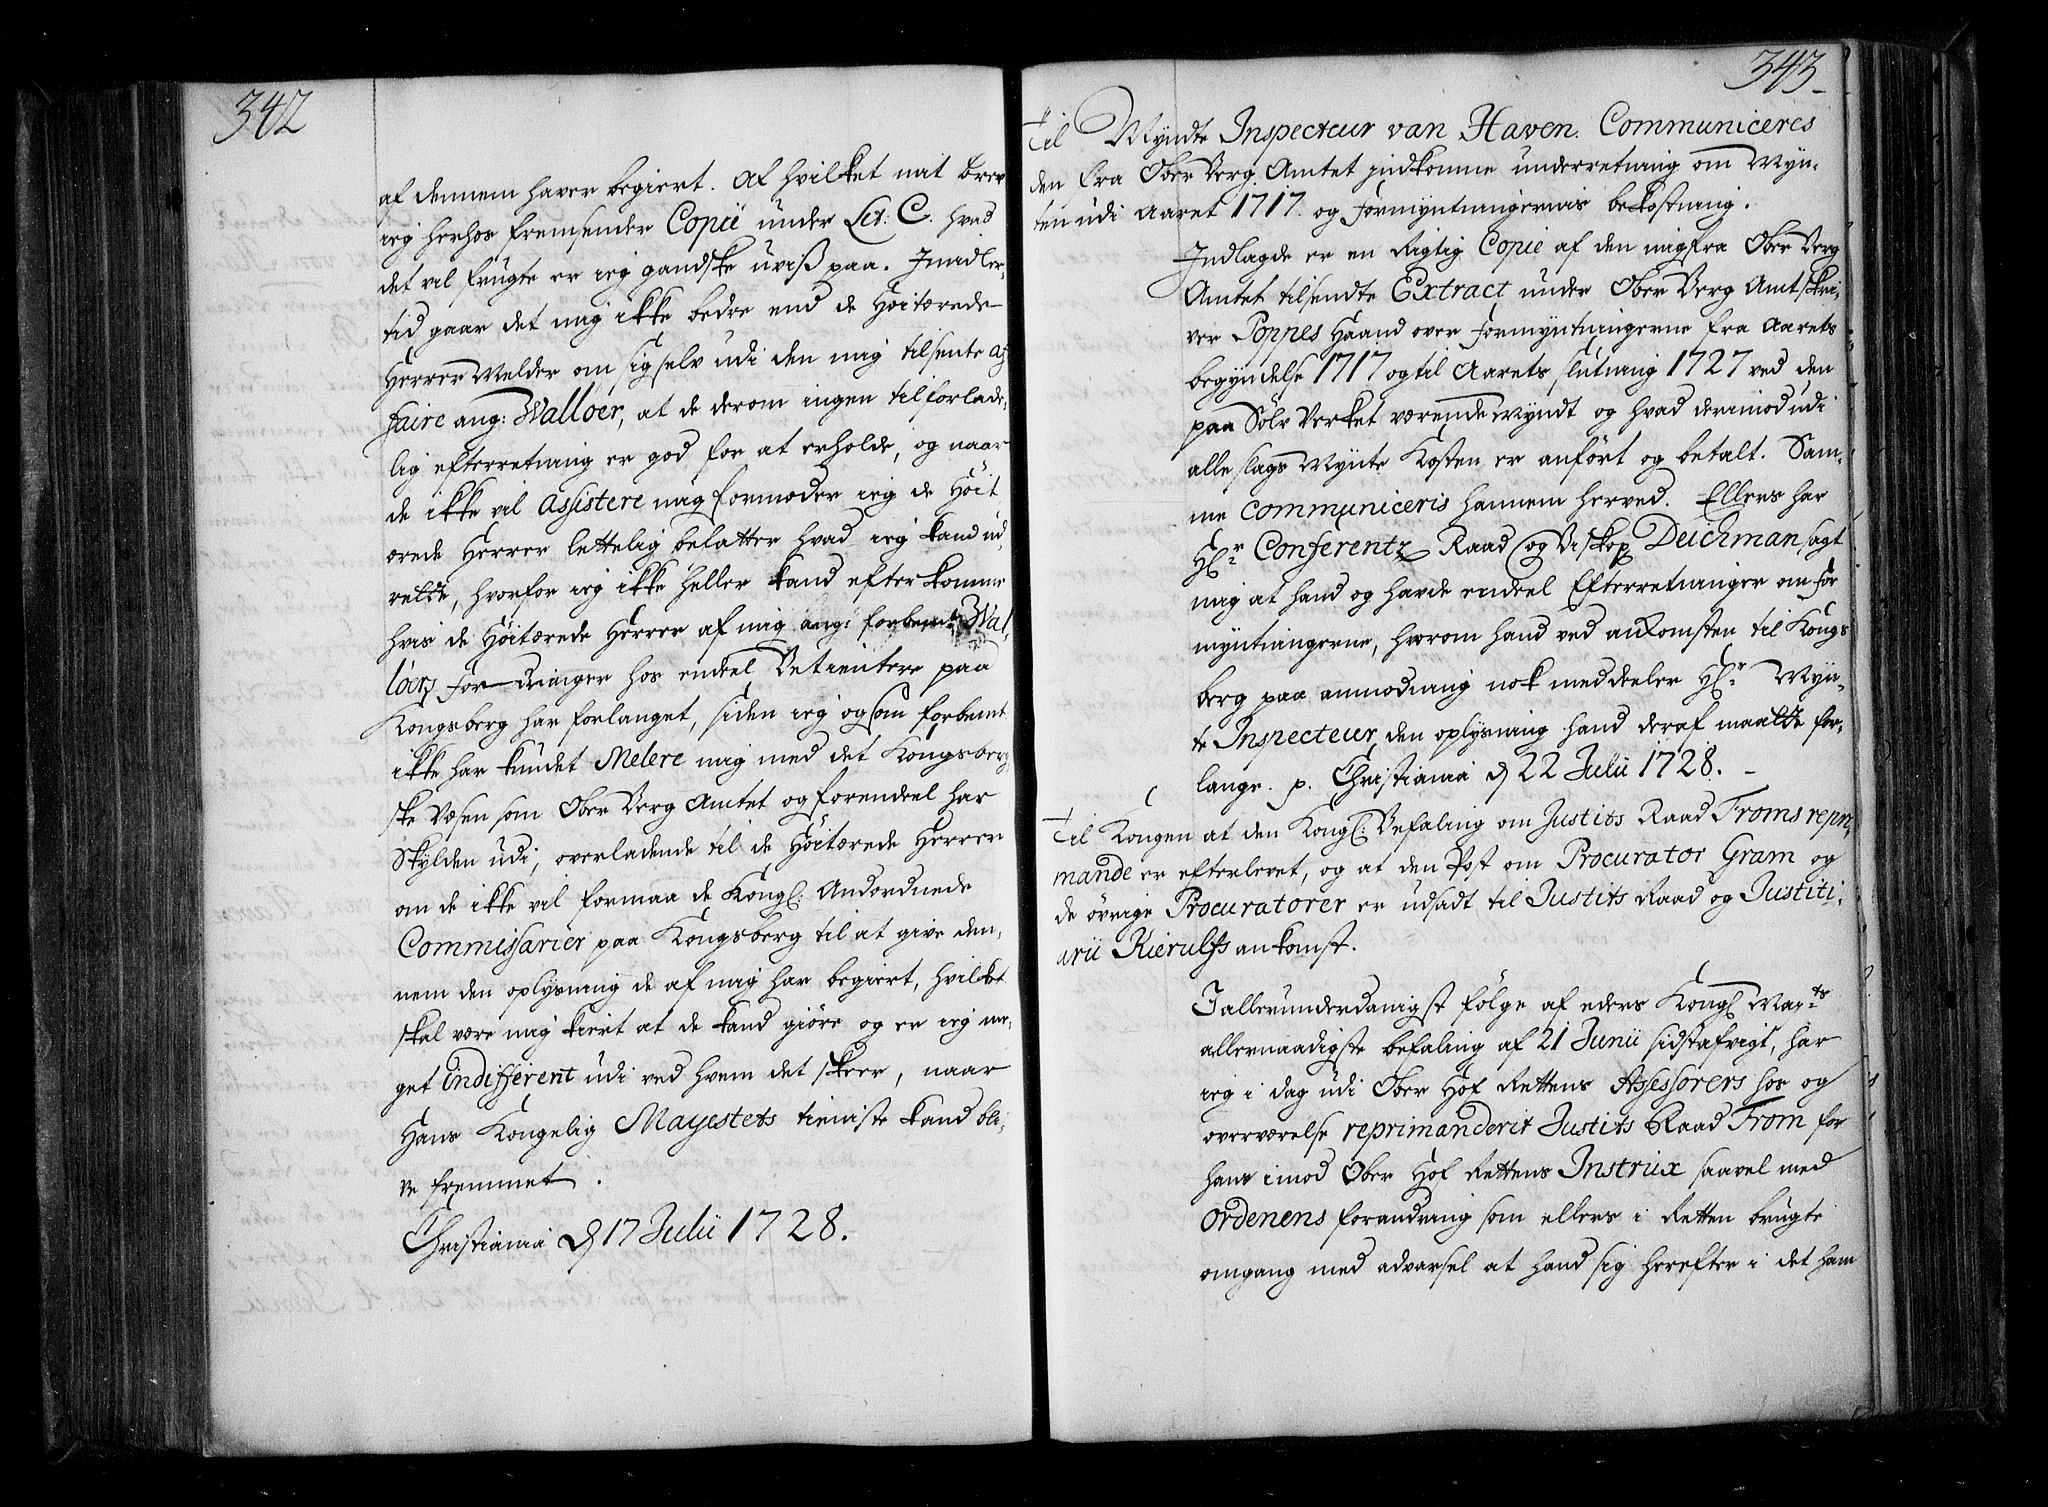 342
af dennem haver begiert. Af hvilket mit brev
ieg herhos fremsender Copii under Lit: C. hvad
det vil frugte er ieg gandske uviß paa. Imidler-
tid gaar det mig ikke bedre end de Höitærede
Herrer Melder om sig selv udi den mig tilsente af
faire ang: Walloer, at de derom ingen tilforlade-
lig efterretning er god for at erholde, og naar
de ikke vil assistere mig formoder ieg de Höit
ærede Herrer lettelig befatter hvad ieg kand ud
rette, hvorfor ieg ikke heller kand efterkomme
hvis de Höitærede Herrer af mig ang: forbemt Wal-
löers fordringer hos endeel Betientere paa
Kongsberg har forlanget, siden ieg og som forbemt
ikke har kundet Melere mig med det Kongsberg-
ske Væsen som Ober Berg Amtet og forendeel har
Skylden udi, overladende til de Höitærede Herrer
om de ikke vil formaa de Kongl: Andordnede
Commissarier paa Kongsberg til at give den-
nem den oplysning de af mig har begiert, hvilket
skal være mig kiert at de kand giöre og er ieg me-
get indifferent udi ved hvem det skeer, naar
Hans Kongelig Mayestets tieniste kand bli-
ve fremmet.
Christiania d 17 Julii 1728.
343
Til Myndte Inspecteur van Haven. Communiceres
den fra Ober Berg Amtet indkomne underretning om Myn-
ten udi Aaret 1717. og formyntningernis bekostning.
Indlagde er en Rigtig Copie af den mig fra Ober Berg
Amtet tilsendte Extract under Ober Berg Amtskri-
ver Poppes Haand over formyntningerne fra Aarets
begyndelse 1717 og til Aarets slutning 1727 ved den
paa Sölv Verket værende Myndt og hvad derimod udi
alle slags Mynte Kosten er anfört og betalt. Sam-
me communiceris hannem herved. Ellers har
Hr Conferentz Raad og Biskop Deichman sagt
mig at hand og havde endeel Efterretninger om for
myntningerne, hvorom hand ved ankomsten til Kongs
berg paa anmodning nok meddeeler Hr Myn-
te Inspecteur, den oplysning hand deraf maatte for-
lange. p. Christiania d 22 Julii 1728.
Til Kongen at den Kongl: Befaling om Justits Raad Froms repri-
mande er efterlevet, og at den Post om Procurator Gram og
de övrige Procuratorer er udsadt til Justits Raad og Justiti-
arii Kierulfs ankomst.
I allerunderdanigst fölge af eders Kongl Mayts
allernaadigste befaling af 21 Junii sidstafvigt, har
ieg i dag udi Ober Hof Rettens Assessorers hos og
overværelse reprimanderit Justits Raad From for
hans imod Ober Hof Rettens Instrux saavel med
Ordenens forandring som ellers i Retten brugte
omgang med advarsel at hand sig herefter i det ham